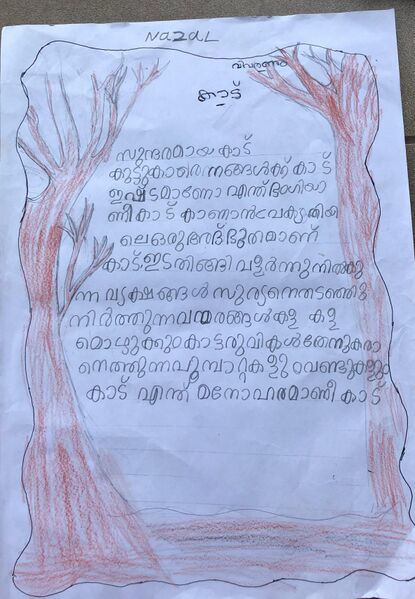 NazaL
വിവരണം
കാട്
സുന്ദരമായ കാട്
കൂട്ടുകാരെ നിങ്ങൾക്ക് കാട്
ഇഷ്ടമാണോ എന്ത് ഭംഗിയാ
ണീ കാട് കാണാൻ പ്രകൃതിയി
ലെ ഒരു അത്ഭുതമാണ്
കാട് ഇടതിങ്ങി വളർന്നുനിൽക്കു
ന്ന വൃക്ഷങ്ങൾ സൂര്യനെ തടഞ്ഞു
നിർത്തുന്ന വന്മരങ്ങൾ കള കള
മൊഴുക്കും കാട്ടരുവികൾ തേനുകരാ
നെത്തുന്ന പൂമ്പാറ്റകളും വണ്ടുകളും
കാട് എന്ത് മനോഹരമാണീ കാട്